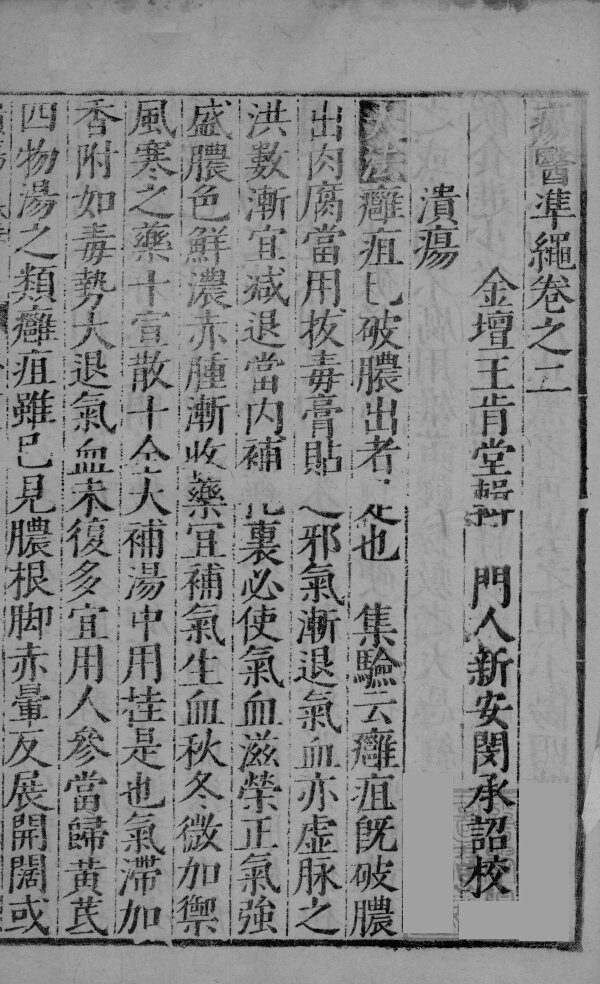 瘍醫準繩卷之二
金壇王肯堂輯 門人新安閔承詔校
潰瘍
大法癰疽已破膿出者是也 集驗云癰疽既破膿
出肉腐當用拔毒膏貼之邪氣漸退氣血亦虛脉之
洪數漸宜減退當內補托裏必使氣血滋榮正氣強
盛膿色鮮濃赤腫漸收藥宜補氣生血秋冬微加禦
風寒之藥十宣散十全大補湯中用桂是也氣滯加
香附如毒勢大退氣血未復多宜用人參當歸黃芪
四物湯之類癰疽雖已見膿根脚赤暈反展開闊或